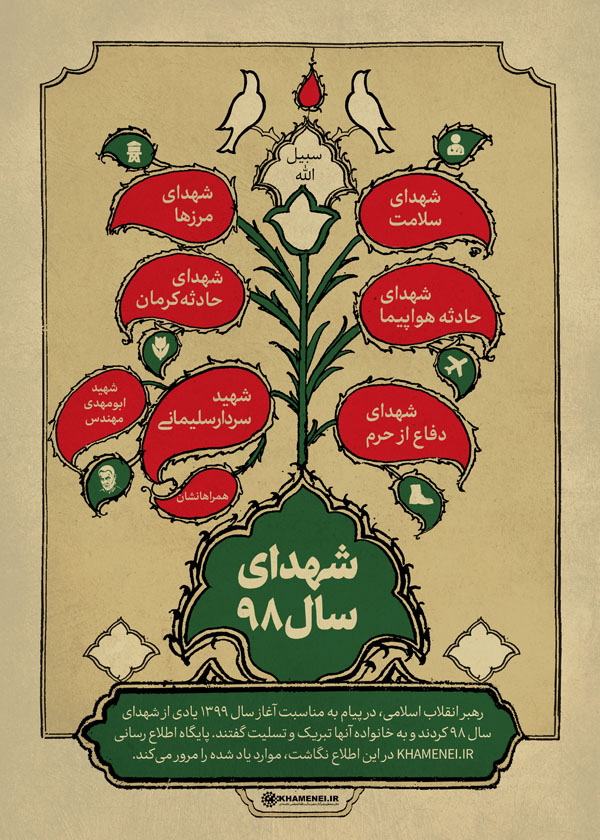 سبیل
الله
شهدای
سلامت
شهدای
مرزها
شهدای
حادثه هواپیما
شهدای
حادثه‌کرمان
شهدای
دفاع از حرم
شهید
سردار سلیمانی
شهید
ابومهدی
مهندس
همراهانشان
شهدای
سال ۹۸
رهبر انقلاب اسلامی، در پیام به مناسبت آغاز سال ۱۳۹۹ یادی از شهدای
سال ۹۸ کردند و به خانواده آنها تبریک و تسلیت گفتند. پایگاه اطلاع رسانی
KHAMENEI.IR در این اطلاع نگاشت، موارد یاد شده را مرور می‌کند.
KHAMENEI.IR